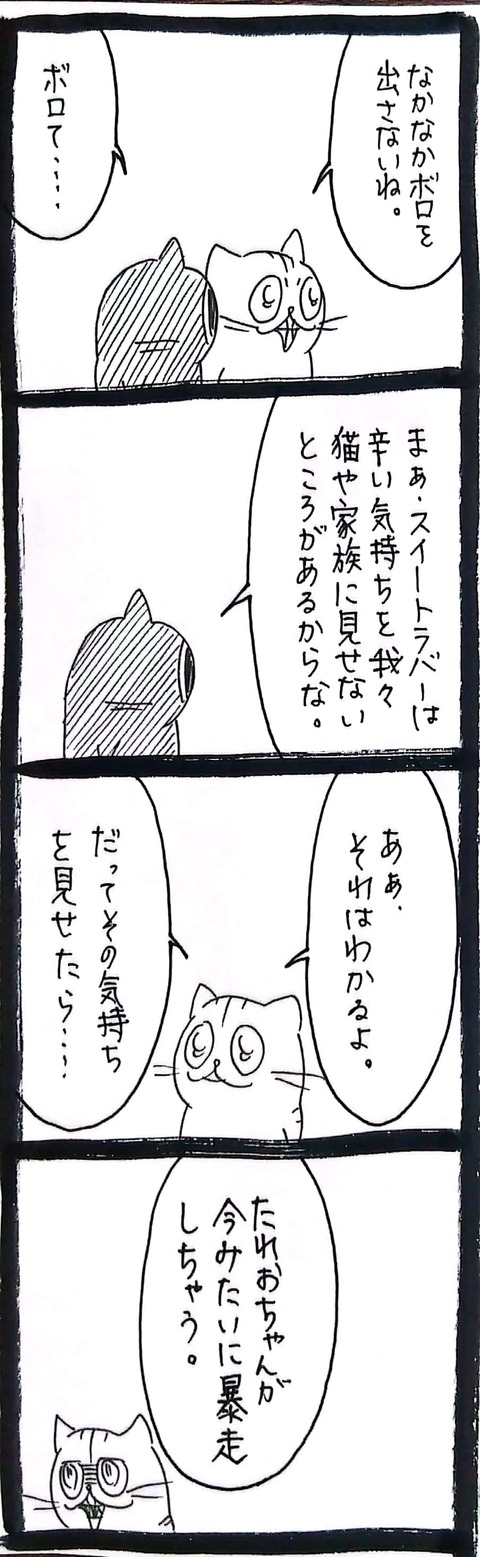 なかなかボロを
出さないね。
ボロて‥‥
まぁ、スイートラバーは
辛い気持ちを我々
猫や家族に見せない
ところがあるからな。
あぁ、
それはわかるよ。
だってその気持ち
を見せたら‥‥
たれおちゃんが
今みたいに暴走
しちゃう。